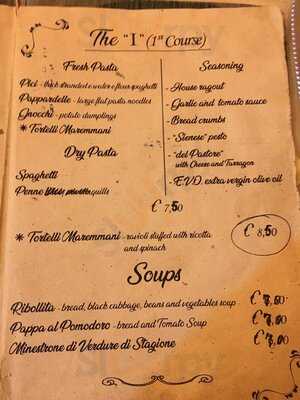 The "I" (1st Course)
Fresh Pasta
Pici - thick stranded water e flour spaghetti
Pappardelle - large flat pasta noodles
Gnocchi - potato dumplings
* Tortelli Maremmani
Dry Pasta
Spaghetti
Penne quills
Seasoning
- House ragout
- Garlic and tomato sauce
- Bread crumbs
- "Sienese" pesto
- "del Pastore"
with Cheese and Tarragon
- E.V.O. extra vergin olive oil
€ 7,50
* Tortelli Maremmani - ravioli stuffed with ricotta
and spinach
€ 8,50
Soups
Ribollita - bread, black cabbage, beans and vegetables soup €
Pappa al Pomodoro - bread and Tomato Soup €
Minestrone di Verdure di Stagione €